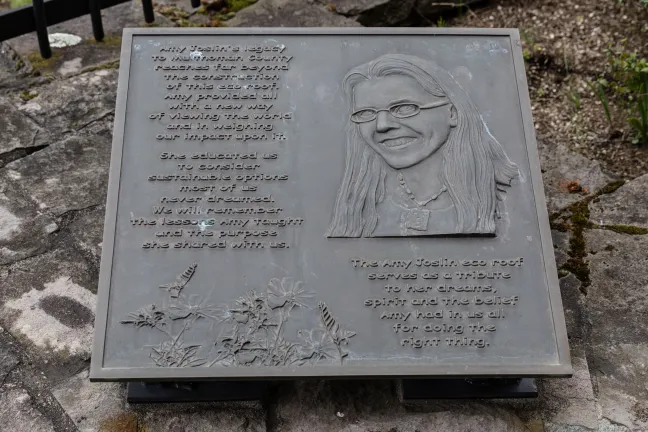 Amy Joslin's legacy
to Multnomah County
reaches far beyond
the construction
of this eco roof.
Amy provided all
with a new way
of viewing the world
and in weighing
our impact upon it.
She educated us
to consider
sustainable options
most of us
never dreamed.
We will remember
the lessons Amy taught
and the purpose
she shared with us.
The Amy Joslin eco roof
serves as a tribute
to her dreams,
spirit and the belief
Amy had in us all
for doing the
right thing.